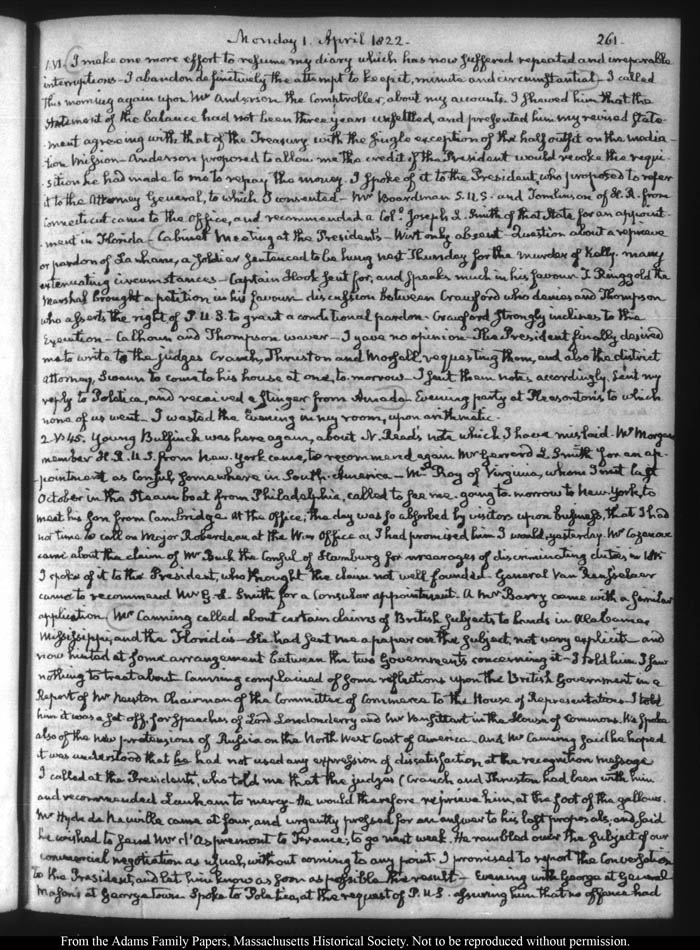 Monday 1. April 1822. 261.
I.VI. I make one more effort to resume my diary which has now suffered repeated and irreparable
interruptions - I abandon definitively the attempt to keep it, minute and circumstantial - I called
this morning again upon Mr Anderson the Comptroller, about my accounts. I shewed him that the
statement of the balance had not been three years unsettled, and presented him my revised state-
-ment agreeing with that of the Treasury with the single exception of the half outfit on the media-
-tion mission - Anderson proposed to allow me the credit if the President would revoke the requi-
-sition he had made to me to repay the money. I spoke of it to the President, who proposed to refer
it to the Attorney General, to which I consented - Mr Boardman S.U.S. and Tomlinson of H.R. from
Connecticut came to the office, and recommended a Col. Joseph L. Smith of that State for an appoint-
-ment in Florida - Cabinet Meeting at the President's - Wirt only absent - Question about a reprieve
or pardon of Lanham, a soldier sentenced to be hung next Thursday for the murder of Kelly. many
extenuating circumstances - Captain Hook sent for, and speaks much in his favour. T. Ringgold the
Marshal brought a petition in his favour discussion between Crawford who denies and Thompson
who asserts the right of P.U.S. to grant a conditional pardon - Crawford strongly inclines to the
Execution - Calhoun and Thompson waver - I gave no opinion - The President finally desired
me to write to the judges Cranch, Thruston and Morsell, requesting them, and also the district
attorney, Swann to come to his house at one, to-morrow - I sent them notes accordingly, sent my
reply to Poletica, and received a stinger from Anduaga - Evening party at Pleasonton's to which
none of us went - I wasted the Evening in my room, upon arithmetic
2. V:45. Young Bulfinch was here again, about N. Read's note which I have mislaid - Mr Morgan
member H.R.U.S. from New-York came, to recommend again Mr Gerrard L. Smith for an ap-
-pointment as Consul somewhere in South-America - Mr Roy of Virginia, whom I met last
October in the Steam boat from Philadelphia, called to see me. going to-morrow to New-York, to
meet his son from Cambridge At the Office; the day was so absorbed by visitors upon business, that I had
not time to call on Major Roberdeau at the War Office as I had promised him I would, yesterday. Mr Cazenove
came about the claim of Mr Buck the Consul of Hamburg for arrearages of discriminating duties
I spoke of it to the President, who thought the claim not well founded - General Van Rensselaer
came to recommend Mr G. L. Smith for a Consular appointment. A Mr Barry came with a similar
application (Mr Canning called about certain claims of British Subjects to lands in Alabama
Mississippi, and the Florida's - He had sent me a paper on the subject, not very explicit - and
now hinted at some arrangement between the two Governments concerning it - I told him I saw
nothing to treat about Canning complained of some reflections upon the British Government in a
Report of Mr Newton Chairman of the Committee of Commerce to the House of Representatives - I told
him it was a set off, for speeches of Lord Londonderry and Mr Vansittart in the House of Commons. He spoke
also of the new pretensions of Russia on the North West Coast of America. And Mr Canning said he hoped
it was understood that he had not used any expression of dissatisfaction at the recognition message
I called at the President's, who told me that the judges (Cranch and Thruston had been with him
and recommended Lanham to mercy - He would therefore reprieve him, at the foot of the gallows.
Mr Hyde de Neuville came at four, and urgently pressed for an answer to his last proposals, and said
he wished to send Mr d'Aspremont to France; to go next week. He rambled over the subject of our
commercial negotiation as usual, without coming to any point. I promised to report the Conversation
to the President, and let him know as soon as possible the result - Evening with George at General
Mason's at Georgetown Spoke to Poletica, at the request of P.U.S. assuring him that no offence had
From the Adams Family Papers, Massachusetts Historical Society. Not to be reproduced without permission.